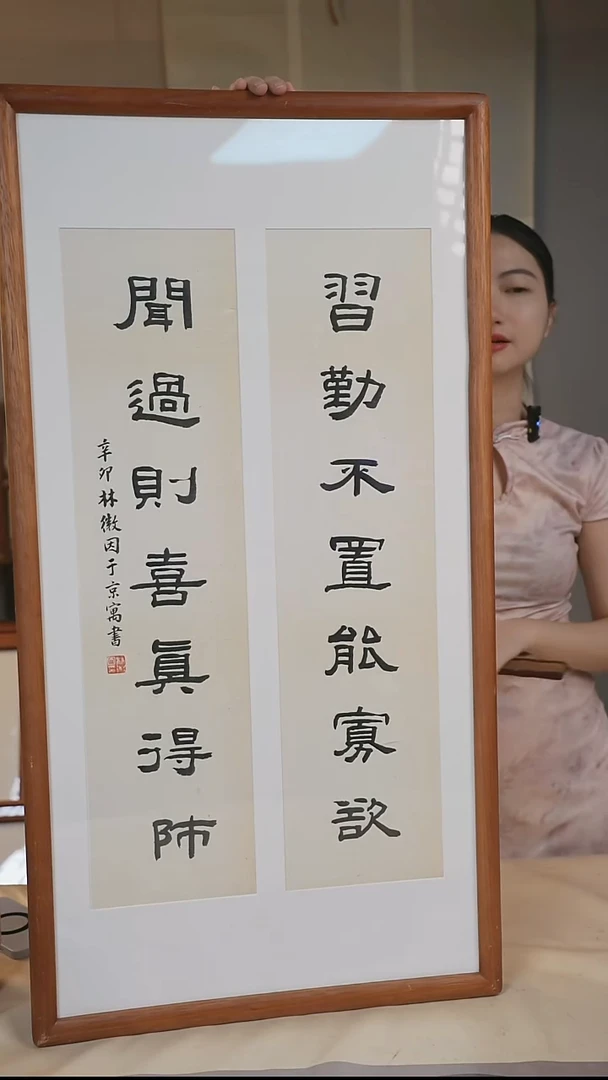 習勤不置能寡欲
聞過則喜真得師
辛卯林徽因于京寓書